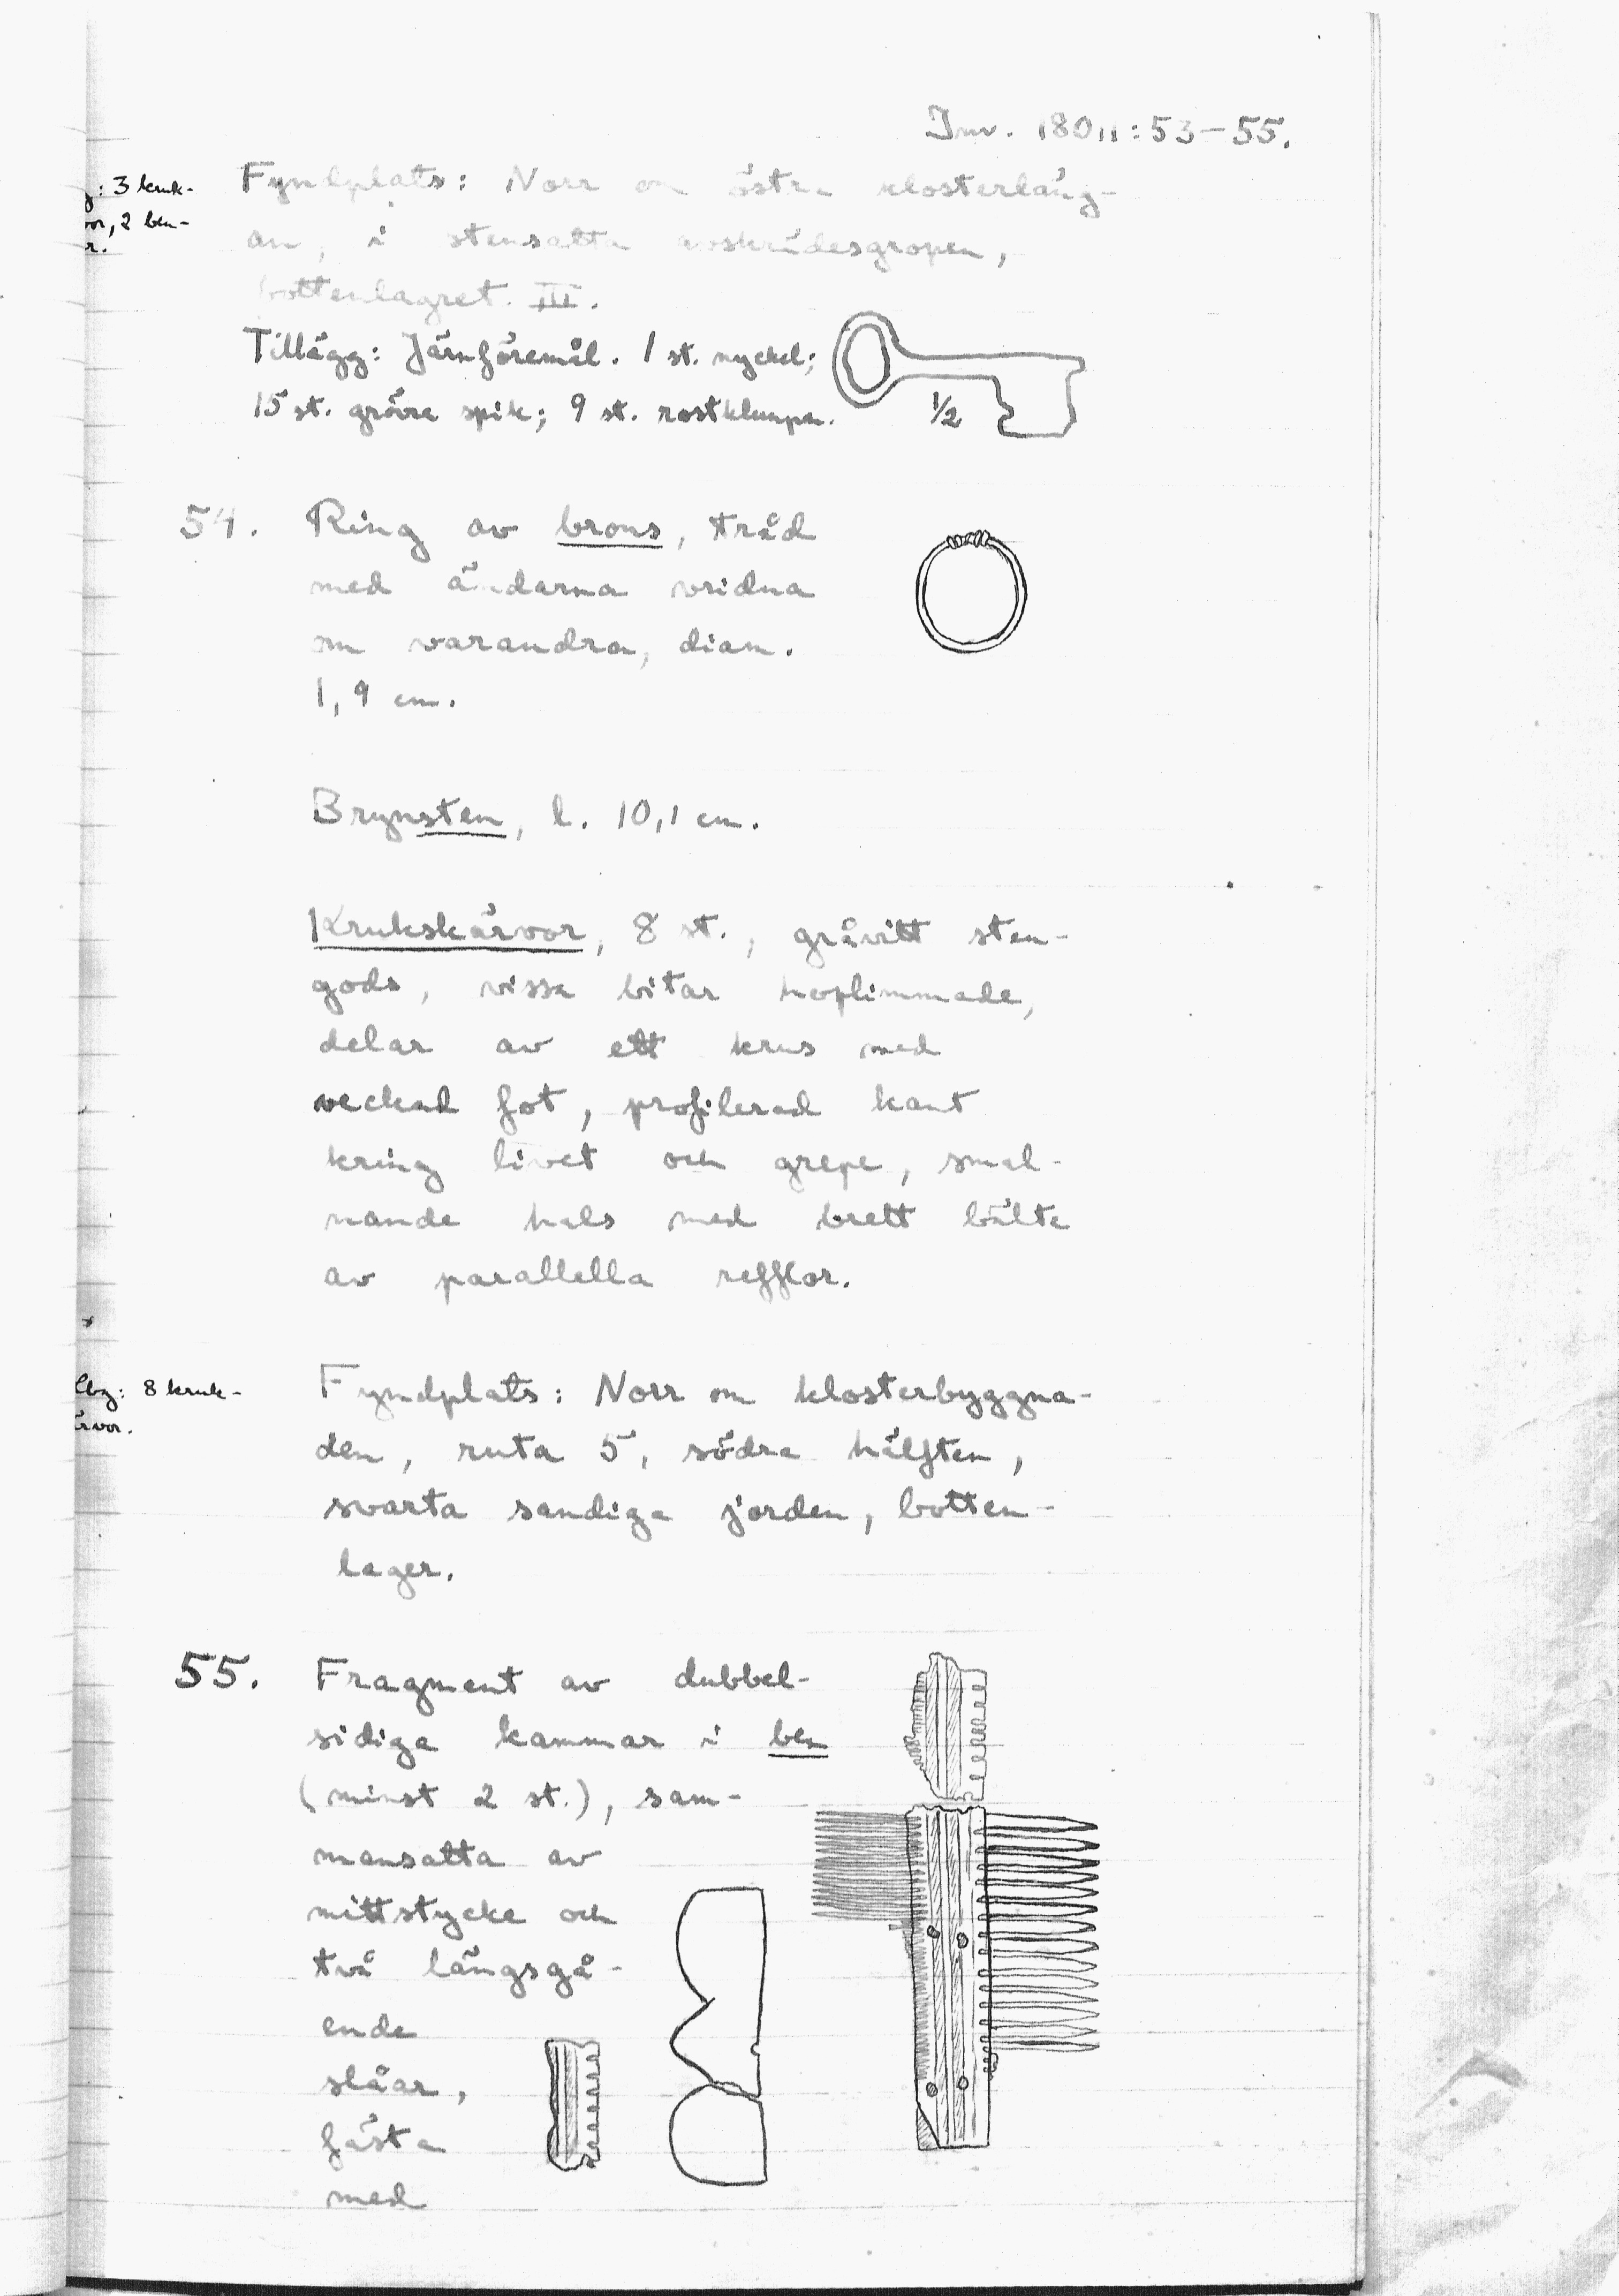 Inv. 18011:53-55.
: 3 kruk-
Fyndplats: Norr om östra klosterläng-
, 2 ben-
an, i stensatta avskrädesgropen,
bottenlagret. III.
Tillägg: Järnföremål. 1 st. nyckel;
15 st. grövre spik; 9 st. rostklumpar.
1/2
54. Ring av brons, tråd
med ändarna vridna
om varandra, diam.
1,9 cm.
Brynsten, l. 10,1 cm.
Krukskärvor, 8 st., gråvitt sten-
gods, vissa bitar hoplimmade,
delar av ett krus med
veckad fot, profilerad kant
kring livet och grepe, smal-
nande hals med brett bälte
av parallella refflor.
: 8 kruk-
ärvor.
Fyndplats: Norr om klosterbyggna-
den, ruta 5, södra hälften,
svarta sandiga jorden, botten-
lager.
55. Fragment av dubbel-
sidiga kammar i ben
(minst 2 st.), sam-
mansatta av
mittstycke och
två längsgå-
ende
slåar,
fästa
med